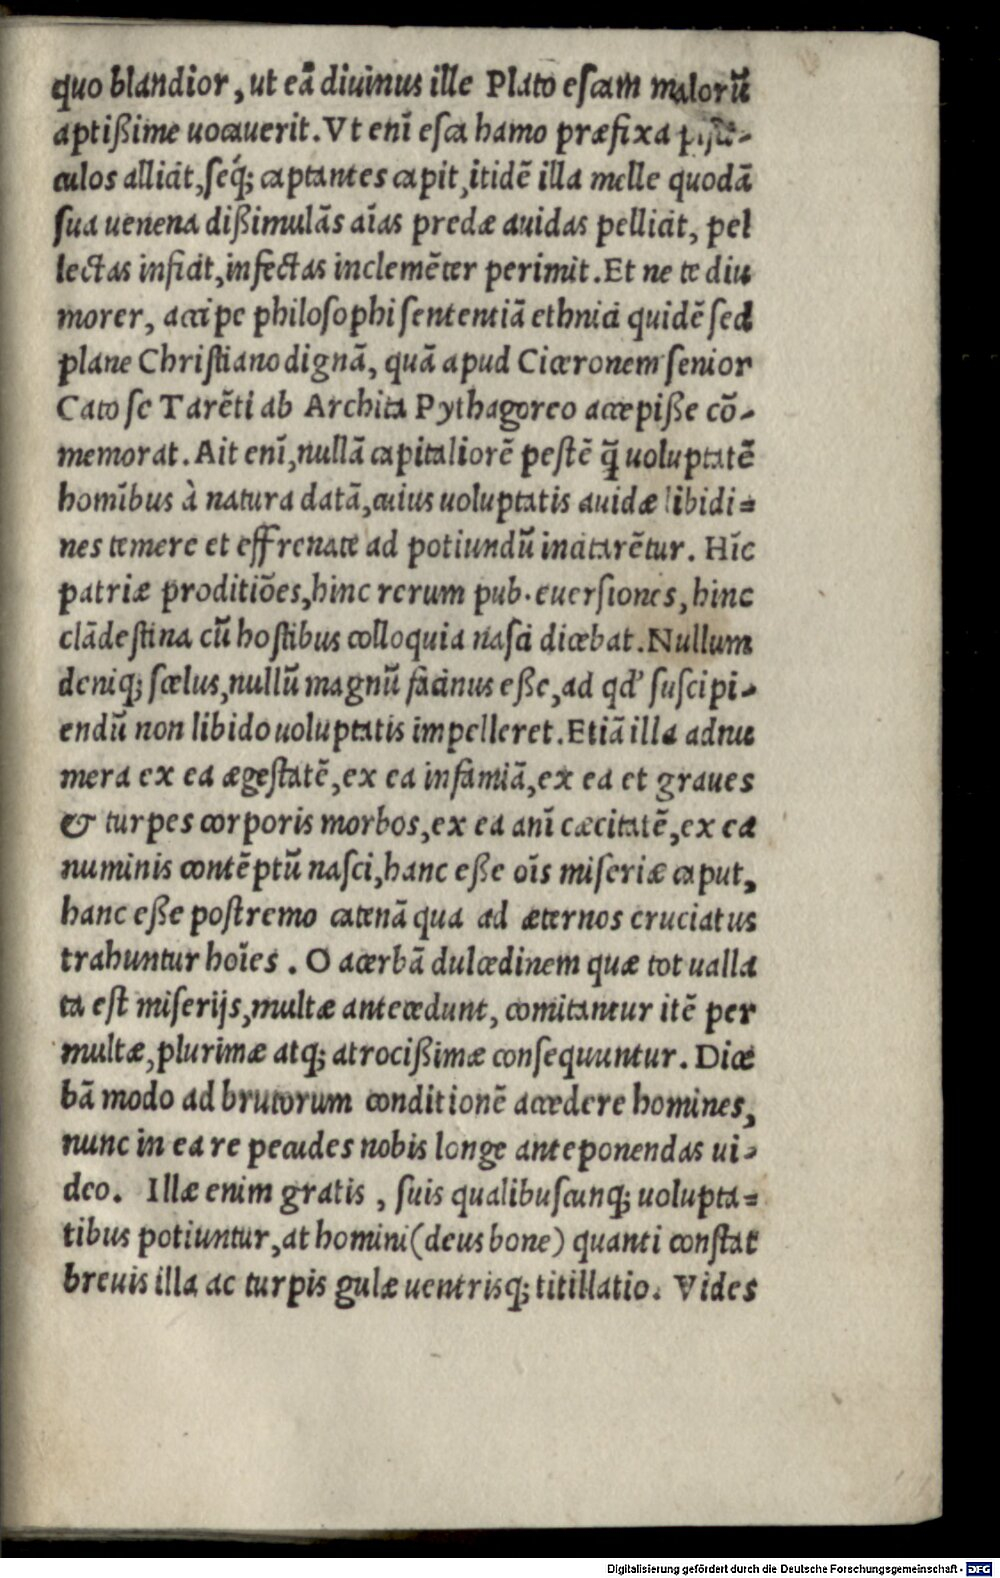 quo blandior, ut eā diuinus ille Plato escam malorū
aptißime uocauerit. Vt enī esca hamo præfixa
culos allicit, seq́; captantes capit, itidē illa melle quodā
sua uenena dißimulās aīas predæ auidas pellicit, pel
lectas inficit, infectas inclemēter perimit. Et ne te diu
morer, accipe philosophi sententiā ethnici quidē sed
plane Christiano dignā, quā apud Ciceronem senior
Cato se Tarēti ab Archita Pythagoreo accepiße cō-
memorat. Ait enī, nullā capitaliorē pestē q̄ uoluptatē
homībus à natura datā, cuius uoluptatis auidæ libidi=
nes temere et effrenate ad potiundū incitarētur. Hīc
patriæ proditiōes, hinc rerum pub. euersiones, hinc
clādestina cū hostibus colloquia nasci dicebat. Nullum
deniq; scelus, nullū magnū facinus eße, ad qd' suscipi-
endū non libido uoluptatis impelleret. Etiā illa adnu
mera ex ea ægestatē, ex ea infamiā, ex ea et graues
& turpes corporis morbos, ex ea anī cæcitatē, ex ea
numinis contēptū nasci, hanc eße oīs miseriæ caput,
hanc eße postremo catenā qua ad æternos cruciatus
trahuntur hoīes. O acerbā dulcedinem quæ tot ualla
ta est miserijs, multæ antecedunt, comitantur itē per
multæ, plurimæ atq; atrocißimæ consequuntur. Dice
bā modo ad brutorum conditionē accedere homines,
nunc in ea re pecudes nobis longe anteponendas ui-
deo. Illæ enim gratis, suis qualibuscunq; uolupta=
tibus potiuntur, at homini (deus bone) quanti constat
breuis illa ac turpis gulæ uentrisq; titillatio. Vides
Digitalisierung gefördert durch die Deutsche Forschungsgemeinschaft - DFG